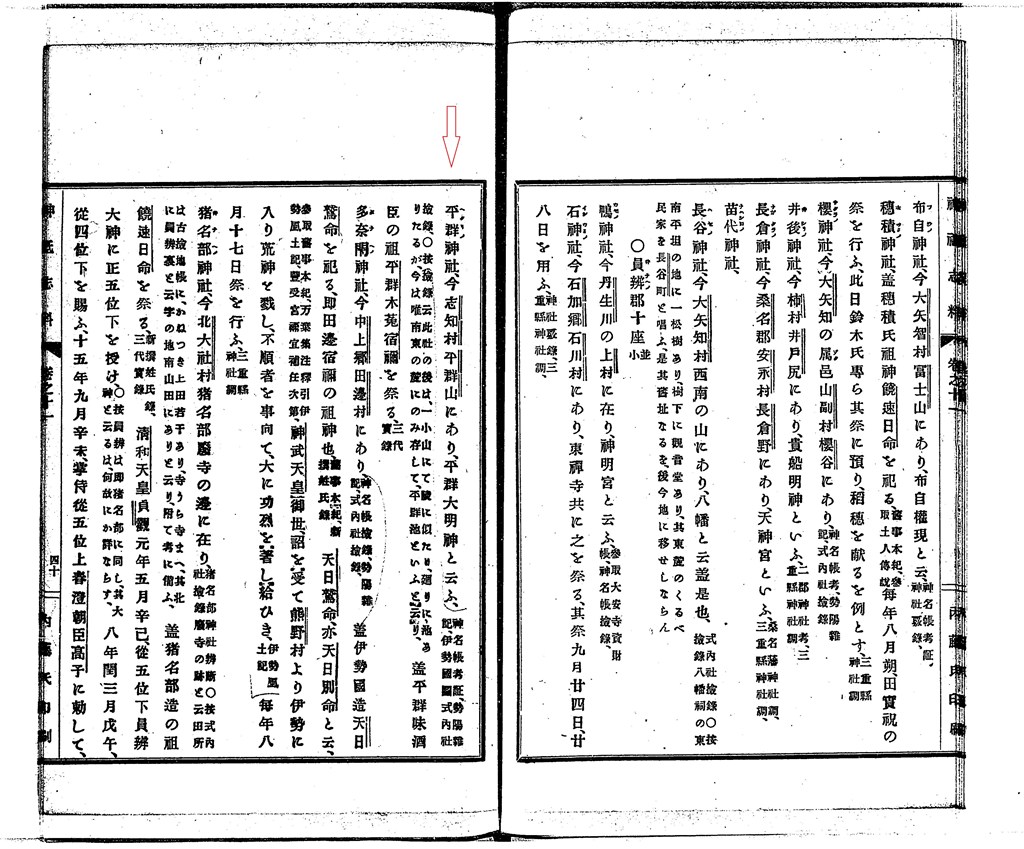 布自神社、今大矢智村富士山にあり、布自權現と云、神名帳考証、神社覈錄、
穗積神社、盖穗積氏祖神饒速日命を祀る、舊事本紀、參取土人傳說 每年八月朔、田實祝の
祭を行ふ、此日鈴木氏專ら其祭に預り、稻穗を献るを例とす、三重縣神社調
櫻神社、今大矢知の属邑山副村櫻谷にあり、神名帳考、勢陽雜記、式內社撿錄
井後神社、今柿村井戶尻にあり、貴船明神といふ、二郡神社考、三重縣神社調
長倉神社、今桑名郡安永村長倉野にあり、天神宮といふ、桑名藩神社調、三重縣神社調、
苗代神社、
長谷神社、今大矢知村西南の山にあり、八幡と云盖是也、式內社撿錄〇按撿錄八幡祠の東
南平坦の地に一松樹あり、樹下に觀音堂あり、其東麓のくるべ
民家を長谷町と唱ふ、是其舊址なるを、後今地に移せしならん
〇員辨郡十座 並小
鴨神社、今丹生川の上村に在り、神明宮と云ふ、參取大安寺資財帳、神名帳撿錄、
石神社、今石加鄉石川村にあり、東禪寺共に之を祭る、其祭九月廿四日、廿
八日を用ふ、神社覈錄、三重縣神社調、
神祇志料 卷之十一
平群神社、今志知村平群山にあり、平群大明神と云ふ、神名帳考証、勢陽雜記、伊勢國圖式內社
撿錄〇按撿錄云此社の後は、一小山にて陵に似たり、廻りに池あ
りたるが今は唯南東の麓にのみ存して、平群池といふと云り、 盖平群味酒
臣の祖平群木菟宿禰を祭る、三代實錄
多奈閇神社、今中上鄉田邊村にあり、神名帳撿錄、勢陽雜記、式內社撿錄、 盖伊勢國造天日
鷲命を祀る、即田邊宿禰の祖神也、舊事本紀、新撰姓氏錄 天日鷲命、亦天日別命と云、
參取舊事本紀、万葉集注釋引伊勢風土記、豐受宮禰宜補任次第、 神武天皇御世、詔を受て熊野村より伊勢に
入り荒神と戮し、不順者を事向て、大に功烈を著し給ひき、伊勢風土記 每年八
月十七日祭を行ふ、三重縣神社調
猪名部神社、今北大社村猪名部廢寺の邊に在り、猪名部神社辨疏〇按式內社撿錄廢寺の跡と云田所
は古撿地帳に、かねつき上田若干あり、寺うら寺まへ、其北
に員辨裏と云字の地南山田にありと云り、附て考に備ふ、 盖猪名部造の祖
饒速日命を祭る、新撰姓氏錄、三代實錄 清和天皇貞觀元年五月辛巳、從五位下員辨
大神に正五位下を授け、〇按員辨は即猪名部に同し、其大神と云るは、何故にか詳ならす、 八年閏三月戊午、
從四位下を賜ふ、十五年九月辛未、掌侍從五位上春澄朝臣高子に勅して、
神祇志料 卷之十一
四十